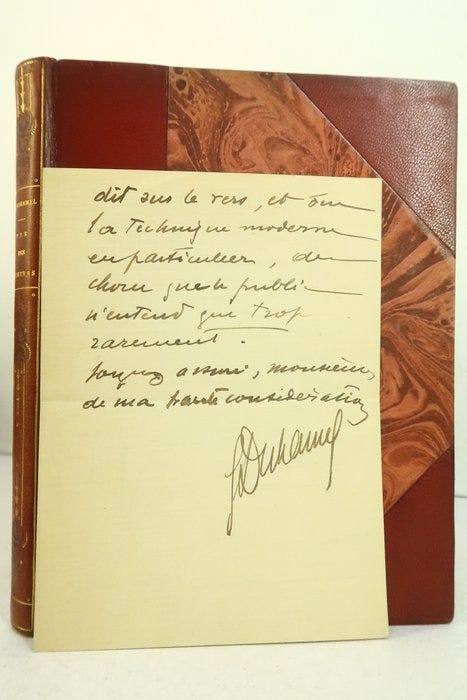 DUHAMEL
VIE
DES
MARTYRS
dit sur le vers, et sur
la technique moderne
en particulier, des
choses que le public
n'entend que trop
rarement.
Soyez assuré, monsieur,
de ma haute considération
GDuhamel